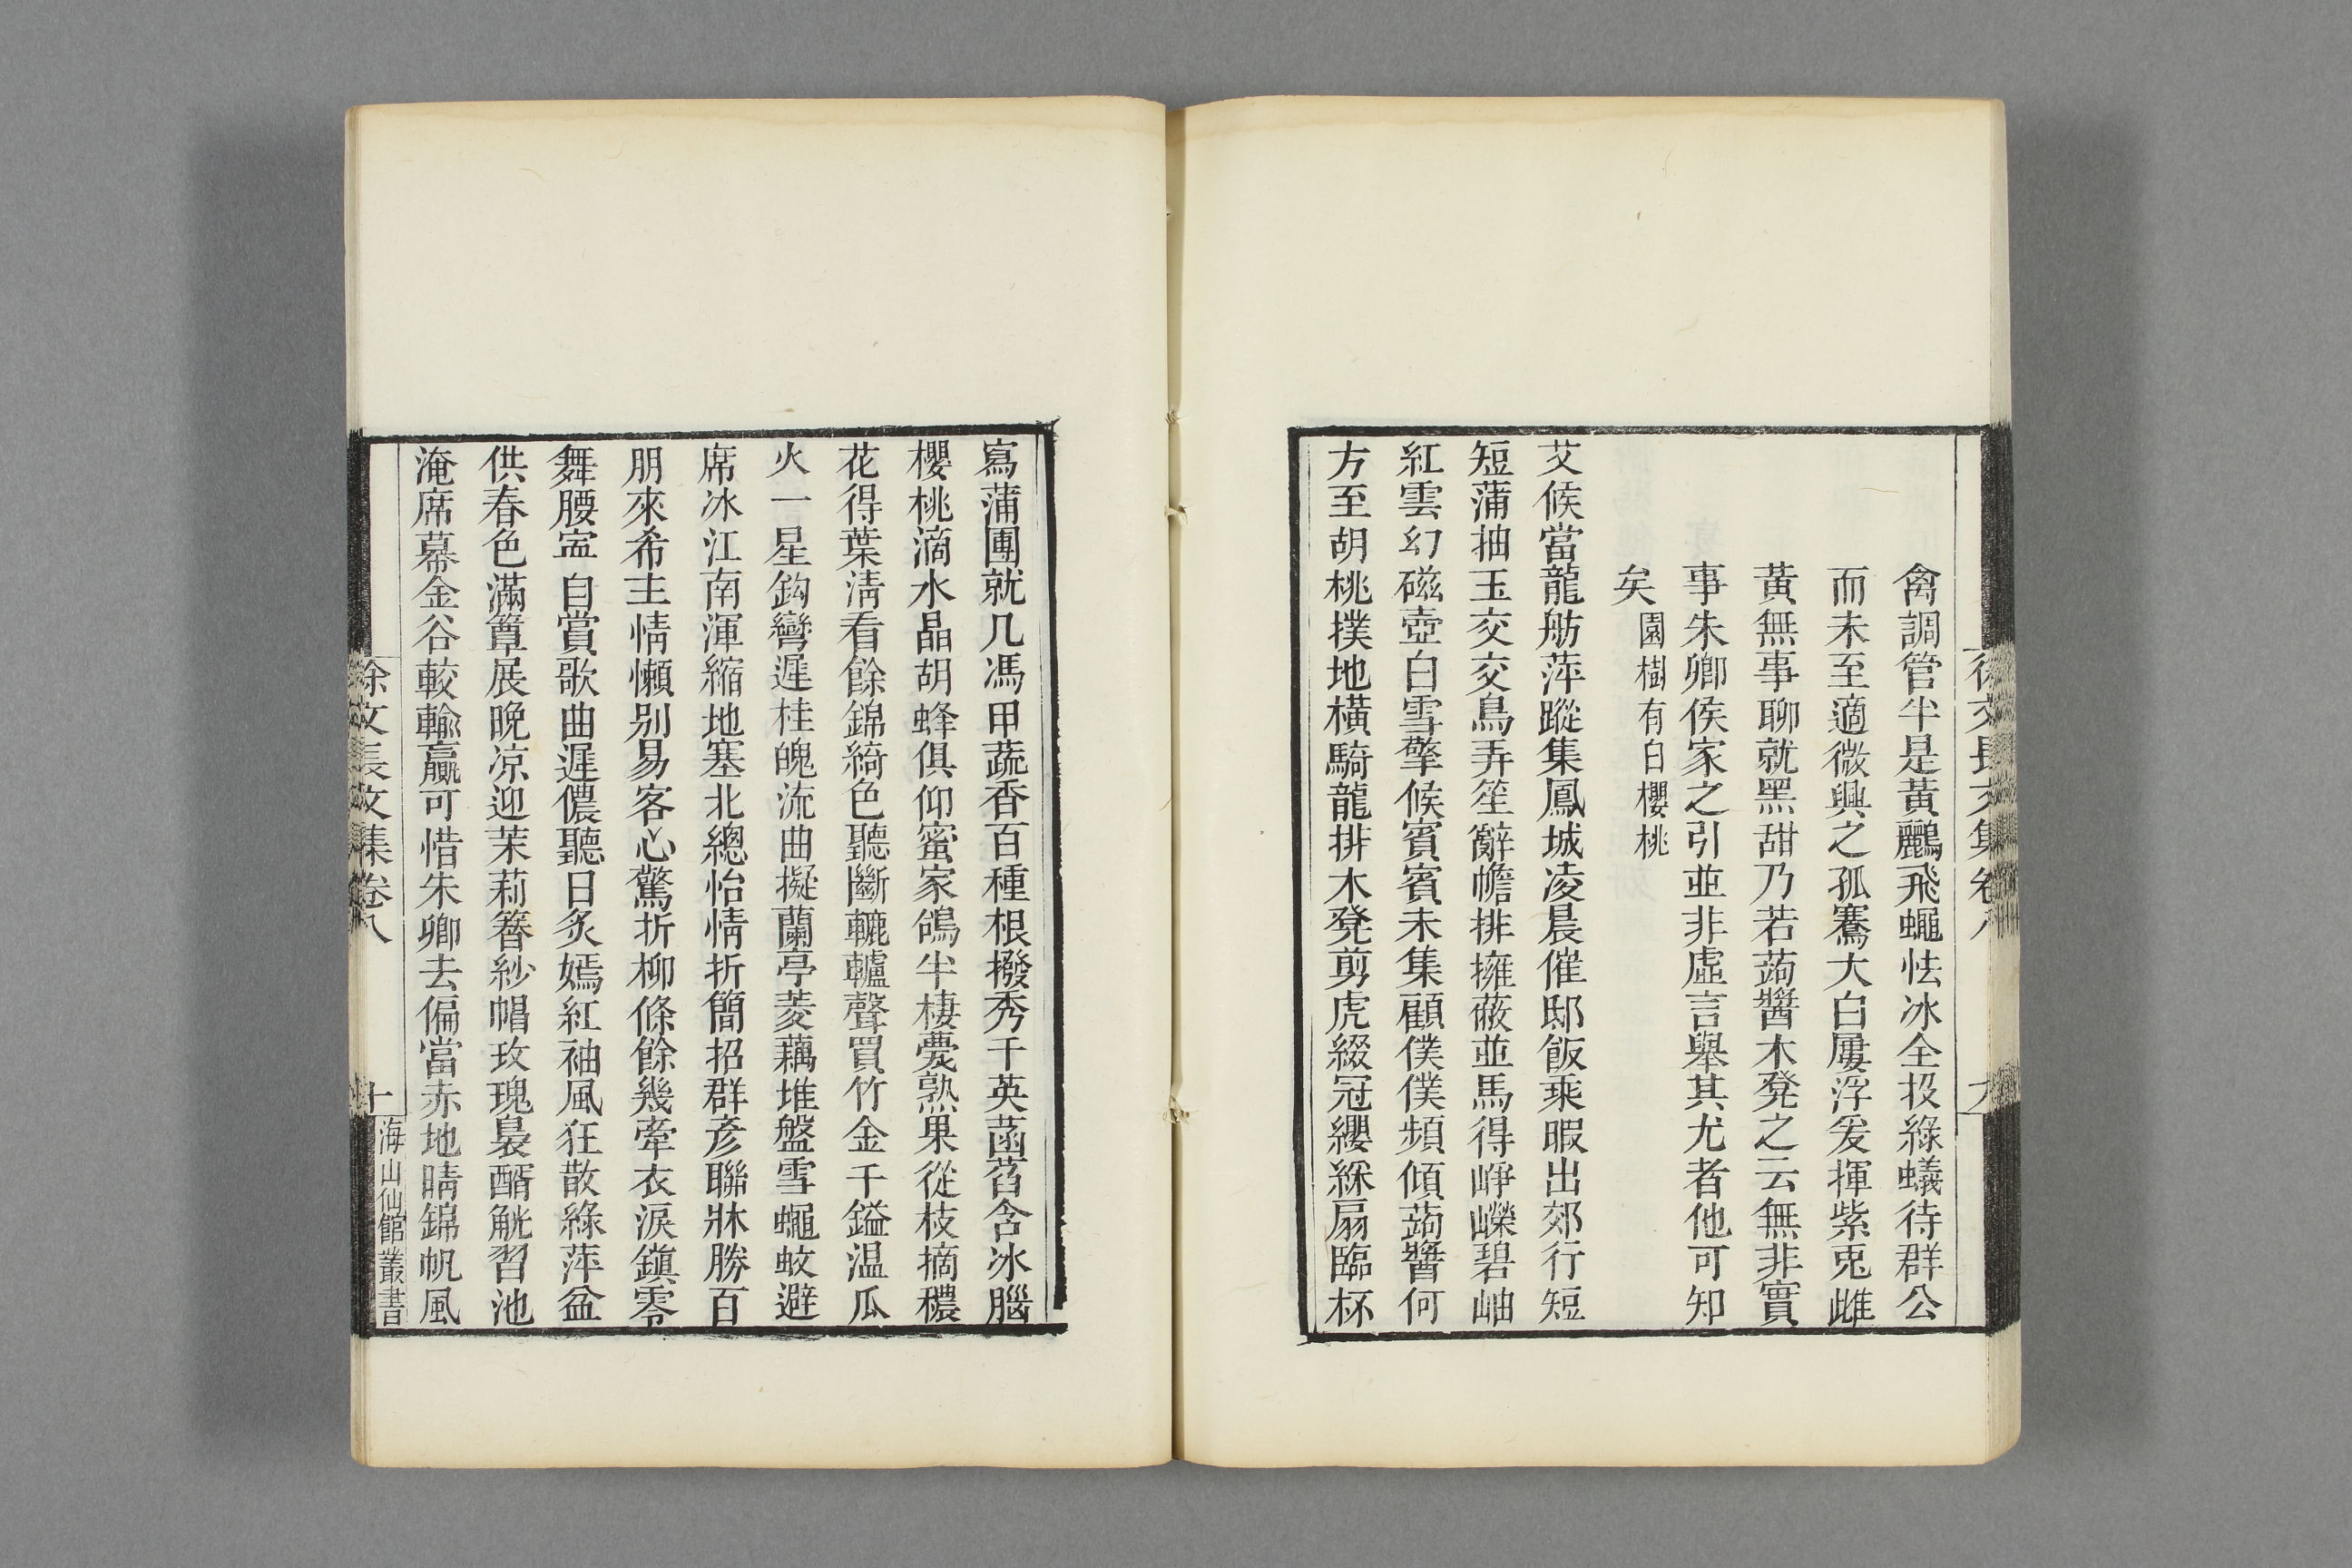 禽調管半是黃鸝飛蠅怯冰全投綠蟻待群公
而未至適微興之孤騫大白屢浮爰揮紫兎雌
黃無事聊就黑甜乃若蒟醬木凳之云無非實
事朱卿侯家之引並非虛言舉其尤者他可知
矣園樹有白櫻桃
艾候當龍舫萍蹤集鳳城凌晨催邸飯乘暇出郊行短
短蒲抽玉交交鳥弄笙辭幨排擁蔽並馬得崢嶸碧岫
紅雲幻磁壺白雪擎候賓賓未集顧僕僕頻傾蒟醬何
方至胡桃撲地橫騎龍排木凳剪虎綴冠纓綵扇臨杯
寫蒲團就几馮甲蔬香百種根撥秀千英菡萏含冰腦
櫻桃滴水晶胡蜂俱仰蜜家鴿半棲甍熟果從枝摘穠
花得葉淸看餘錦綺色聽斷轆轤聲買竹金千鎰温瓜
火一星鈎彎遲桂魄流曲擬蘭亭菱藕堆盤雪蠅蚊避
席冰江南渾縮地塞北總怡情折簡招群彥聯牀勝百
朋來希主情懶别易客心驚折柳條餘幾牽衣淚鎮零
舞腰寍自賞歌曲遲儂聽日炙嫣紅袖風狂散綠萍盆
供春色滿簟展晩凉迎茉莉簪紗帽玫瑰裊醑觥習池
淹席幕金谷較輸贏可惜朱卿去偏當赤地晴錦帆風
徐文長文集卷八
十
海山仙館叢書